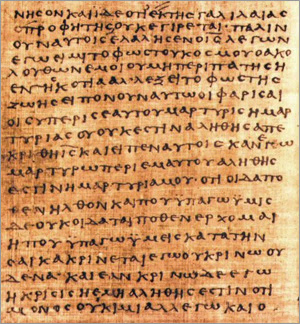 ΝΗϹΟΝΚΑΙΙΔΕΟΤΙΕΚΤΗϹΓΑΛΙΛΑΙΑϹ
ΟΠΡΟΦΗΤΗϹΟΥΚΕΓΕΙΡΕΤΑΙ· ΠΑΛΙΝ
ΟΥΝΑΥΤΟΙϹΕΛΑΛΗϹΕΝΟΙϹΛΕΓΩΝ
ΕΓΩΕΙΜΙΤΟΦΩϹΤΟΥΚΟϹΜΟΥΟΑΚΟ
ΛΟΥΘΩΝΕΜΟΙΟΥΜΗΠΕΡΙΠΑΤΗϹΗ
ΕΝΤΗϹΚΟΤΙΑΑΛΛΕΞΕΙΤΟΦΩϹΤΗϹ
ΖΩΗϹΕΙΠΟΝΟΥΝΑΥΤΩΟΙΦΑΡΙϹΑΙ
ΟΙϹΥΠΕΡΙϹΕΑΥΤΟΥΜΑΡΤΥΡΙϹΗΜΑΡ
ΤΥΡΙΑϹΟΥΟΥΚΕϹΤΙΝΑΛΗΘΗϹΑΠΕ
ΚΡΙΘΗΙϹΚΑΙΕΙΠΕΝΑΥΤΟΙϹΚΑΝΕΓΩ
ΜΑΡΤΥΡΩΠΕΡΙΕΜΑΥΤΟΥΑΛΗΘΗϹ
ΕϹΤΙΝΗΜΑΡΤΥΡΙΑΜΟΥΟΤΙΟΙΔΑΠΟ
ΘΕΝΗΛΘΟΝΚΑΙΠΟΥΥΠΑΓΩΥΜΙϹ
ΔΕΟΥΚΟΙΔΑΤΑΙΠΟΘΕΝΕΡΧΟΜΑΙ
ΗΠΟΥΥΠΑΓΩΥΜΕΙϹΚΑΤΑΤΗΝ
ϹΑΡΚΑΚΡΙΝΕΤΑΙΕΓΩΟΥΚΡΙΝΩΟΥ
ΔΕΝΑ· ΚΑΙΕΑΝΚΡΙΝΩΔΕΕΓΩ
ΗΚΡΙϹΙϹΗΕΜΗΑΛΗΘΗϹΕϹΤΙΝΟΤΙ
ΜΟΝΟϹΟΥΚΙΜΙΑΛΛΕΓΩΚΑΙΟ